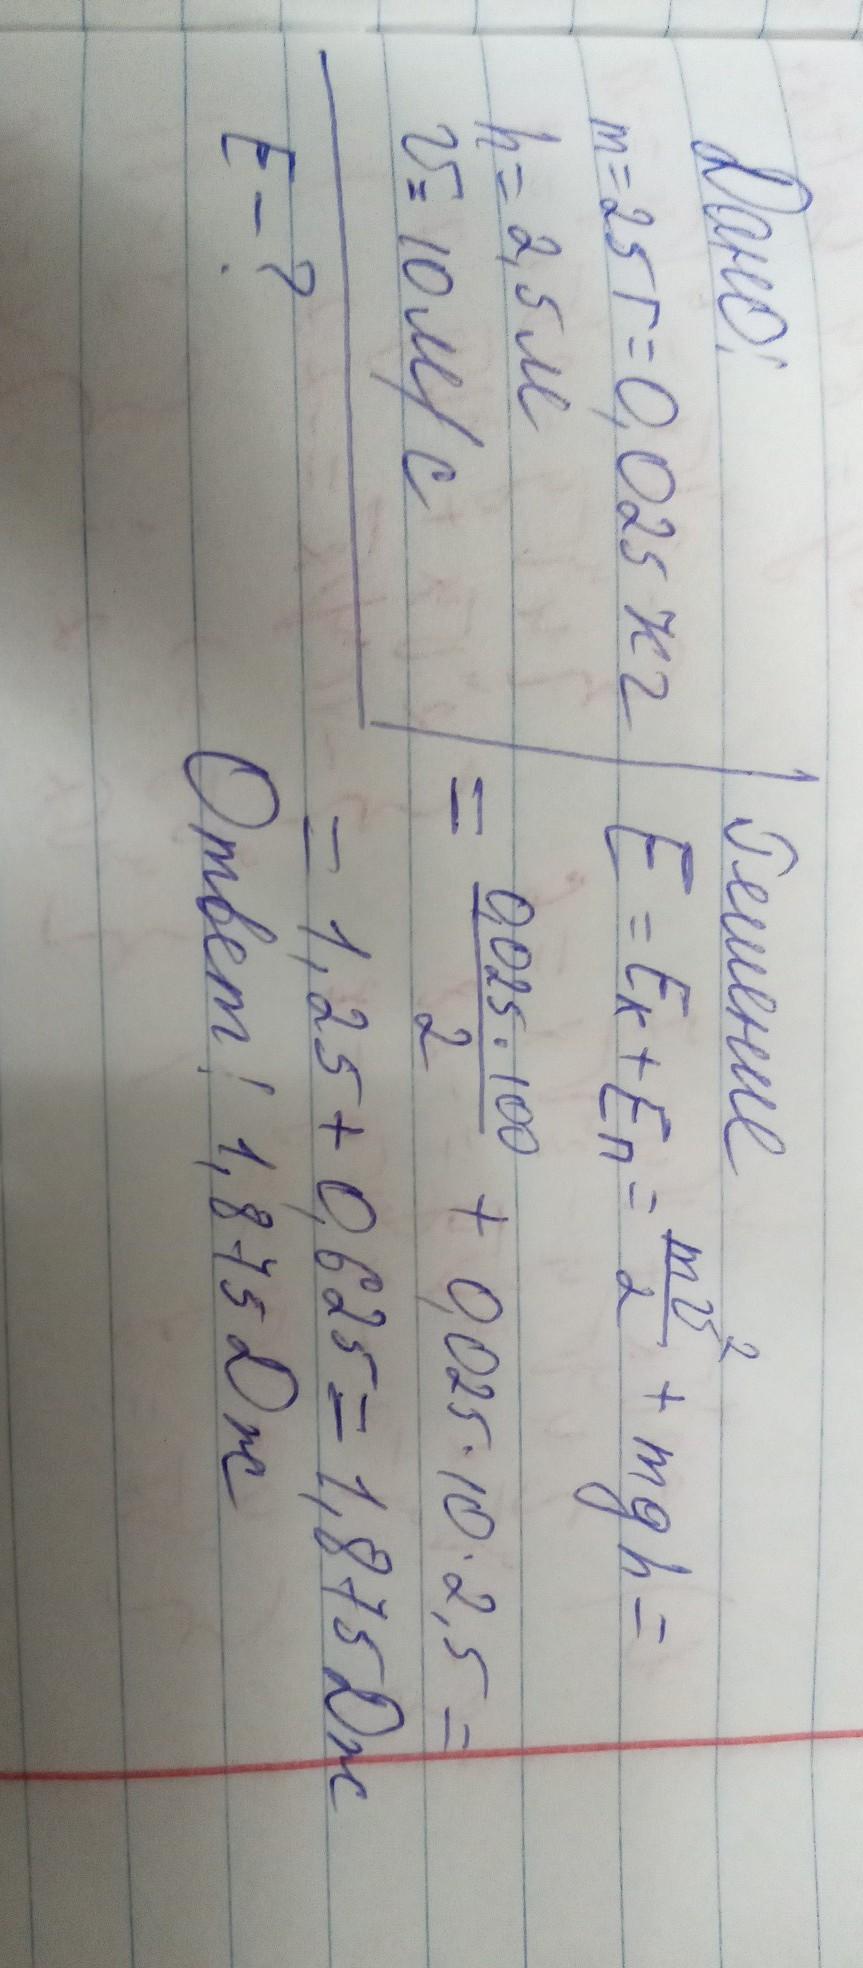 Дано:
m = 25 г = 0,025 кг
h = 2,5 м
v = 10 м/с
E - ?
Решение
E = Eк + Eп = mv²/2 + mgh =
= 0,025·100/2 + 0,025·10·2,5 =
= 1,25 + 0,625 = 1,875 Дж
Ответ: 1,875 Дж